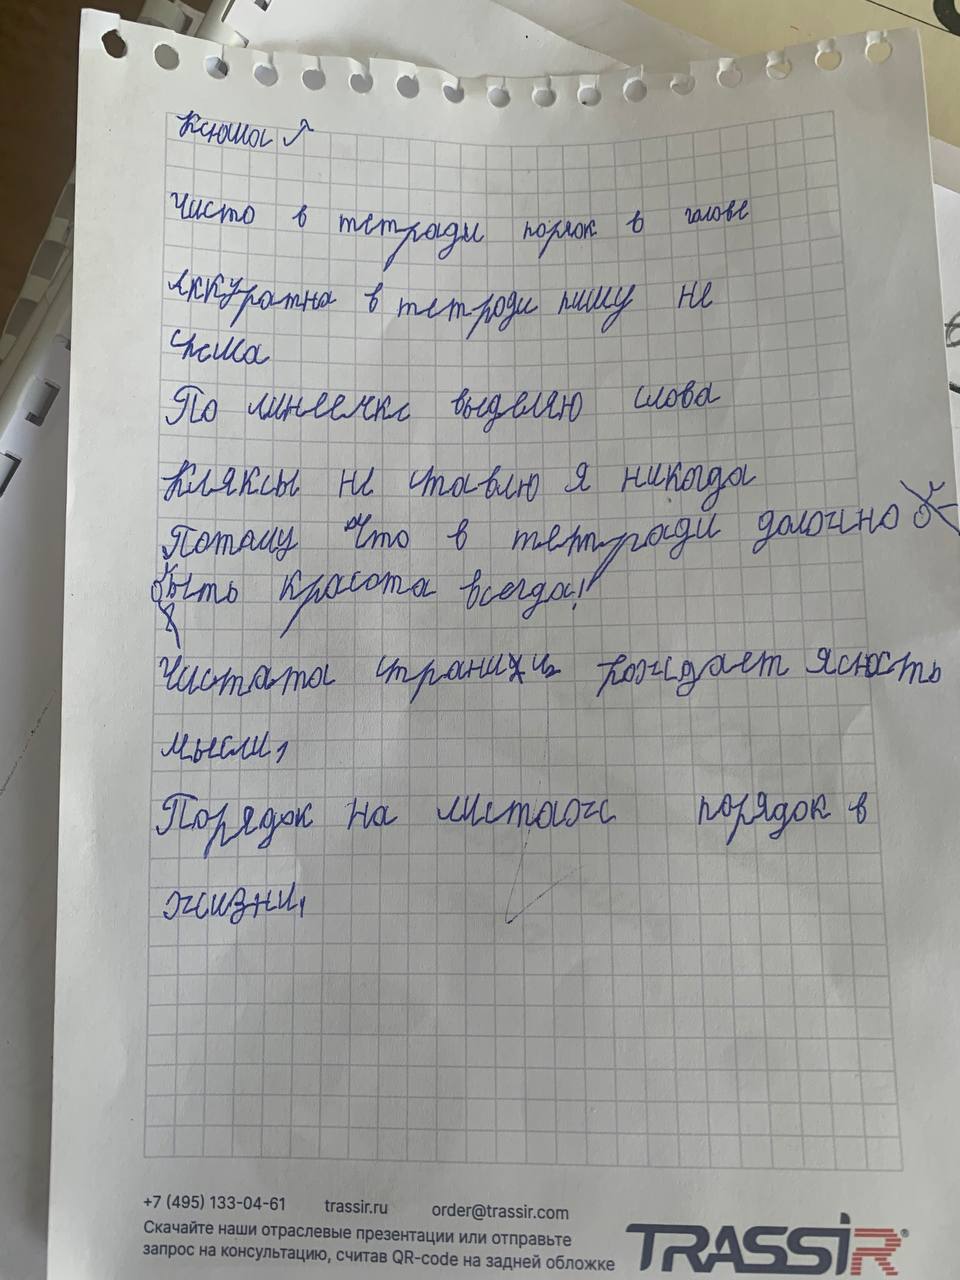 Ксюша
Чисто в тетради поряок в голове
Аккуратна в тетроди пишу не
По линеечке выделяю слова
Кляксы не ставлю я никогда
Потому что в тетради должно
быть красота всегда!
Чистата страниц рождает ясность
мысли,
Порядок на листаже порядок в
жизни,
+7 (495) 133-04-61 trassir.ru order@trassir.com
Скачайте наши отраслевые презентации или отправьте
запрос на консультацию, считав QR-code на задней обложке
TRASSIR®